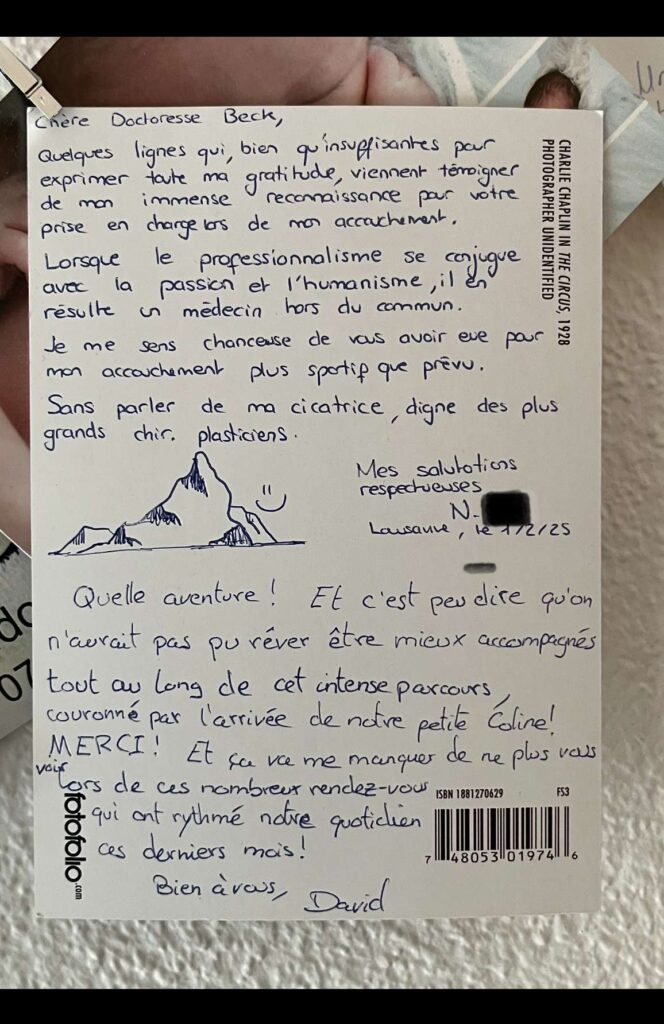 Chère Doctoresse Beck,
Quelques lignes qui, bien qu'insuffisantes pour
exprimer toute ma gratitude, viennent témoigner
de mon immense reconnaissance pour votre
prise en charge lors de mon accouchement.
Lorsque le professionnalisme se conjugue
avec la passion et l'humanisme, il en
résulte un médecin hors du commun.
Je me sens chanceuse de vous avoir eue pour
mon accouchement plus sportif que prévu.
Sans parler de ma cicatrice, digne des plus
grands chir. plasticiens.
Mes salutations
respectueuses
N.
Lausanne, le 1/2/25
CHARLIE CHAPLIN IN THE CIRCUS, 1928
PHOTOGRAPHER UNIDENTIFIED
Quelle aventure ! Et c'est peu dire qu'on
n'aurait pas pu rêver être mieux accompagnés
tout au long de cet intense parcours,
couronné par l'arrivée de notre petite Coline!
MERCI ! Et ça va me manquer de ne plus vous
voir
lors de ces nombreux rendez-vous
qui ont rythmé notre quotidien
ces derniers mois !
Bien à vous,
David
ISBN 1881270629 FS3
7 48053 01974 6
fotofolio.com
do
07